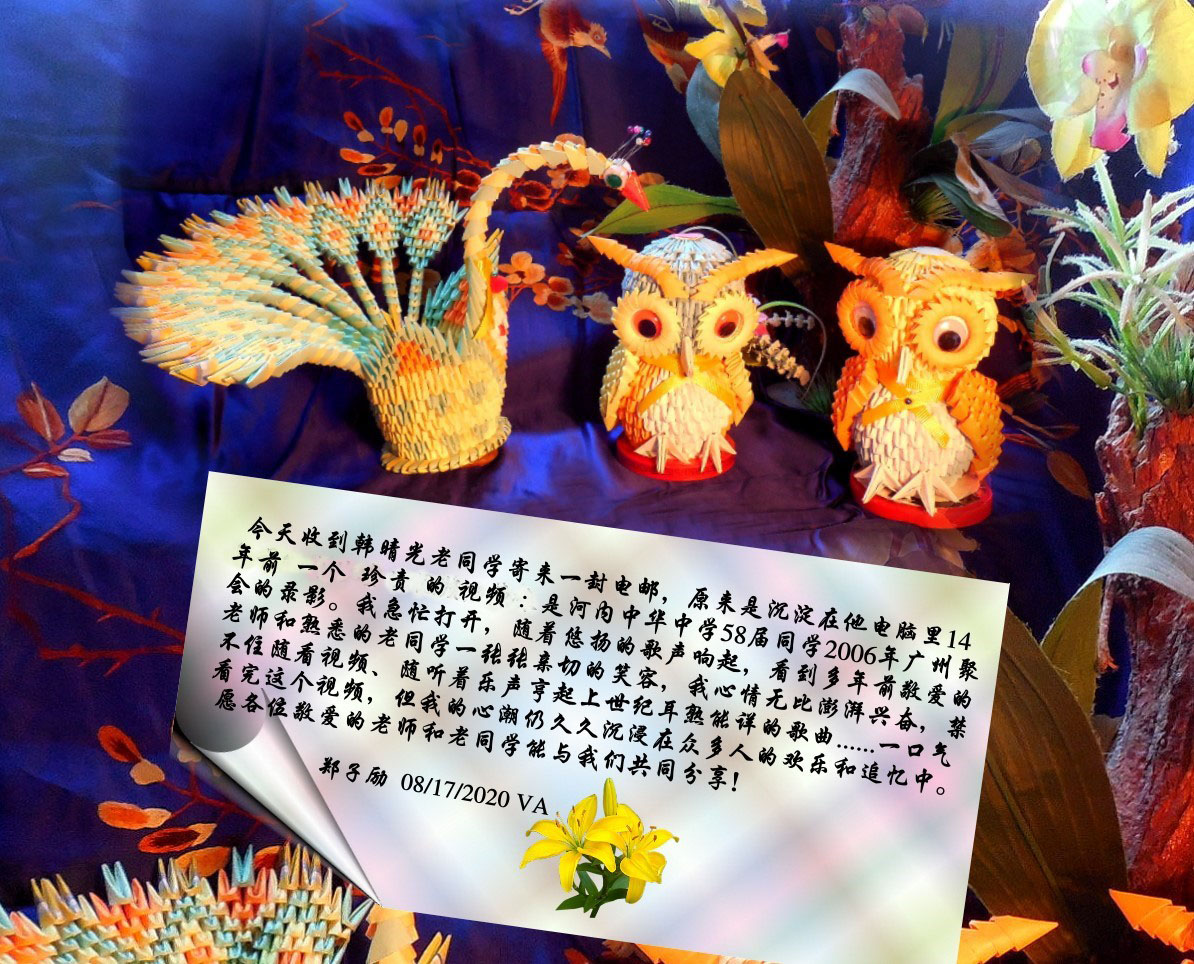 今天收到韩晴光老同学寄来一封电邮，原来是沉淀在他电脑里14
年前 一个 珍贵 的 视频 ：是河内中华中学58届同学2006年广州聚
会的录影。我急忙打开，随着悠扬的歌声响起，看到多年前敬爱的
老师和熟悉的老同学一张张亲切的笑容，我心情无比澎湃兴奋，禁
不住随看视频、随听着乐声亨起上世纪耳熟能详的歌曲……一口气
看完这个视频，但我的心潮仍久久沉浸在众多人的欢乐和追忆中。
愿各位敬爱的老师和老同学能与我们共同分享！
郑子励 08/17/2020 VA